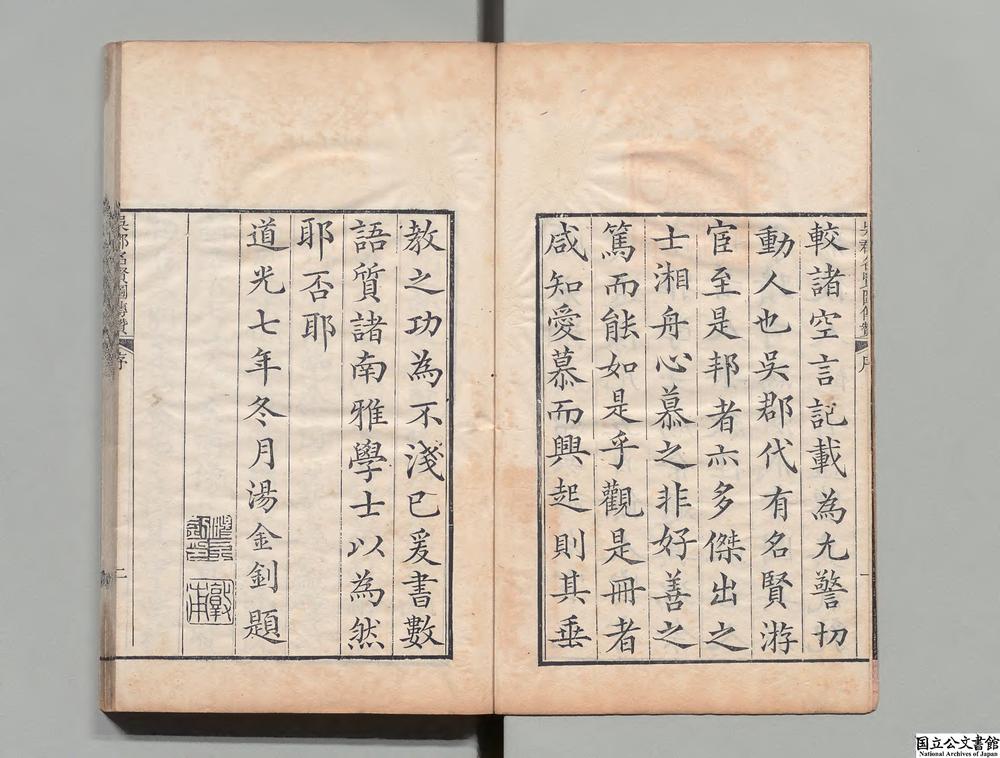 較諸空言記載為尤警切
動人也吳郡代有名賢游
宦至是邦者亦多傑出之
士湘舟心慕之非好善之
篤而能如是乎觀是冊者
咸知愛慕而興起則其垂
一
教之功為不淺已爰書數
語質諸南雅學士以為然
耶否耶
道光七年冬月湯金釗題
吳郡名賢圖傳贊
序
二
国立公文書館
National Archives of Japan